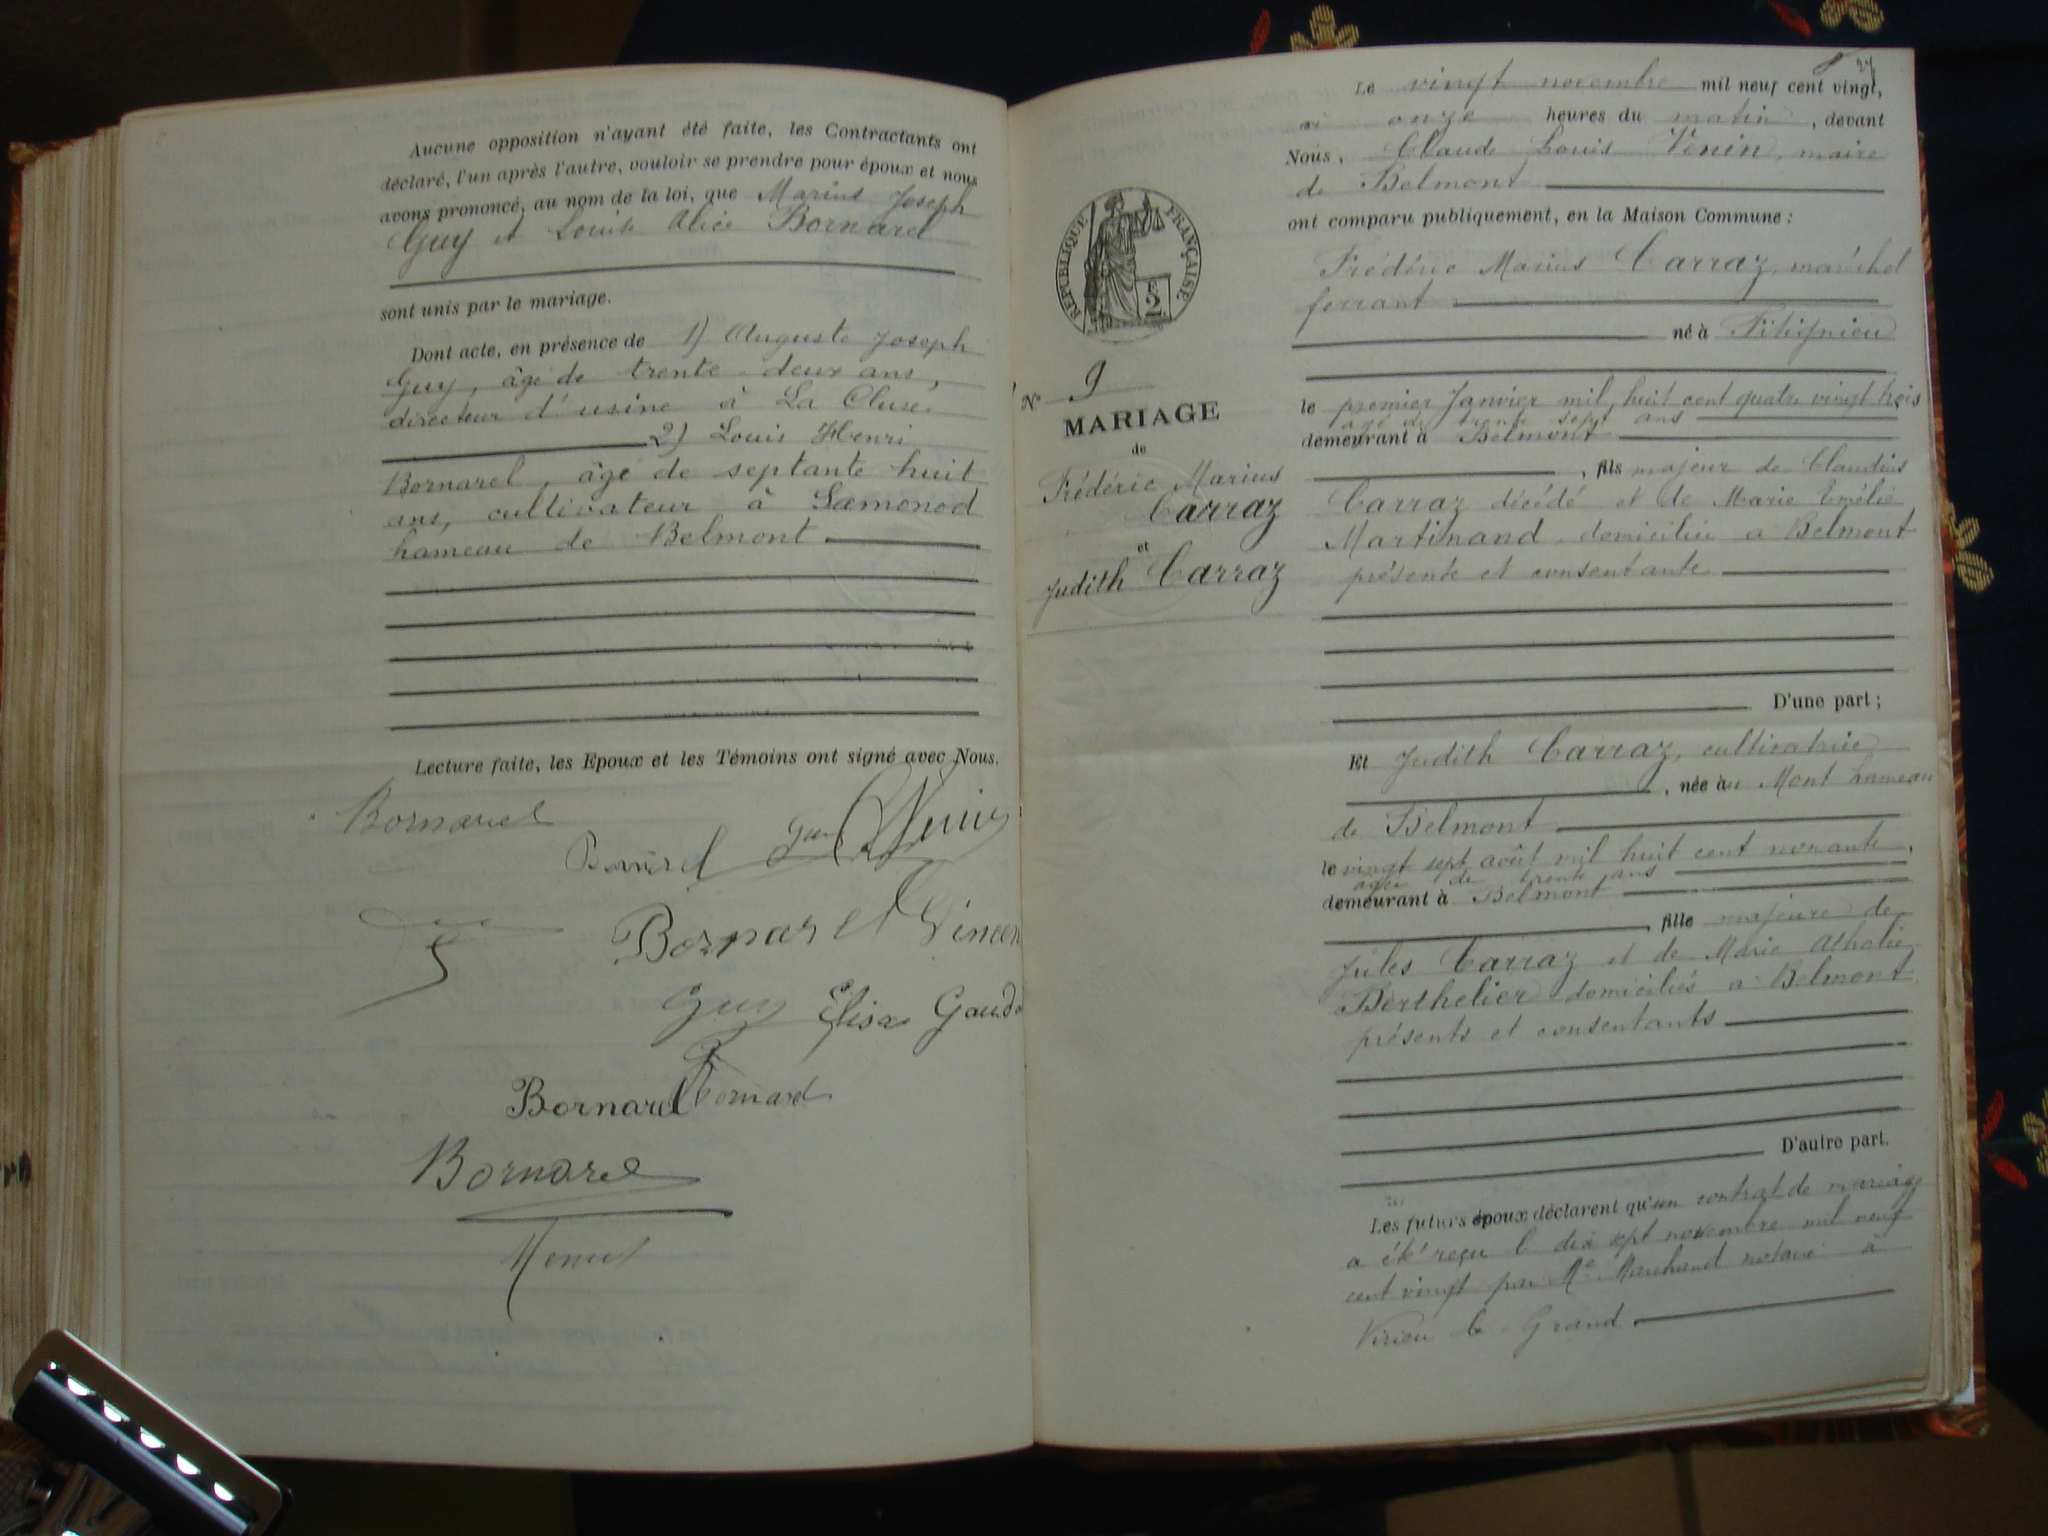 Aucune opposition n'ayant été faite, les Contractants ont
déclaré, l'un après l'autre, vouloir se prendre pour époux et nous
avons prononcé, au nom de la loi, que Marius Joseph
Guy et Louise Alice Bornarel
sont unis par le mariage.
Dont acte, en présence de 1) Auguste Joseph
Guy, âgé de trente-deux ans,
directeur d'usine à La Cluse.
2) Louis Henri
Bornarel, âgé de septante huit
ans, cultivateur à Samonod
hameau de Belmont
Lecture faite, les Epoux et les Témoins ont signé avec Nous.
Bornarel
Guy
Bornarel Vincen
Guy Elisa Gaud
Bornarel Bornarel
Bornarel
27
Le vingt novembre mil neuf cent vingt,
à onze heures du matin, devant
Nous, Claude Louis Venin, maire
de Belmont
ont comparu publiquement, en la Maison Commune :
Frédéric Marius Carraz, maréchal
ferrant
né à Fitignieu
le premier Janvier mil huit cent quatre vingt trois
âgé de trente sept ans
demeurant à Belmont
, fils majeur de Claudius
Carraz décédé et de Marie Emélie
Martinand domiciliée à Belmont
présente et consentante
D'une part ;
Et Judith Carraz, cultivatrice
, née au Mont hameau
de Belmont
le vingt sept août mil huit cent nonante,
âgée de trente ans
demeurant à Belmont
, fille majeure de
Jules Carraz et de Marie Athalie
Berthelier domiciliés à Belmont
présents et consentants
D'autre part.
Les futurs époux déclarent qu'un contrat de mariage
a été reçu le dix sept novembre mil neuf
cent vingt par Me Marchand notaire à
Virieu le Grand
RÉPUBLIQUE FRANÇAISE
2
N° 9
MARIAGE
de
Frédéric Marius
Carraz
et
Judith Carraz